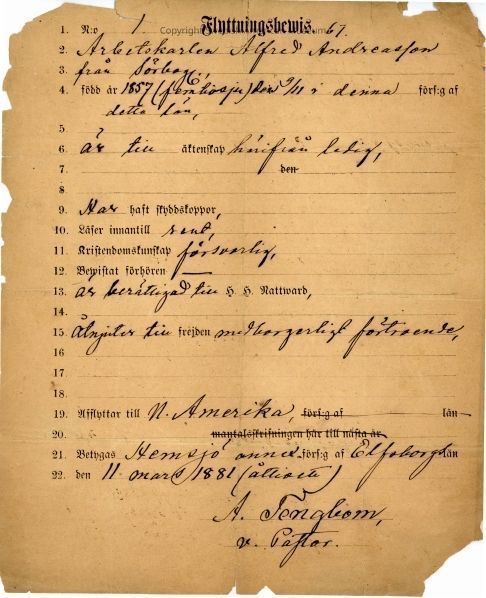 1. N:o 1. Flyttningsbewis. 67.
2. Arbetskarlen Alfred Andreasson
3. från Sörbog,
4. född år 1857 (femtiosju) den 9/11 i denna förs:g af
detta län,
5.
6. är till äktenskap härifrån ledig,
7. den
8.
9. Har haft skyddskoppor,
10. Läser innantill rent,
11. Kristendomskunskap försvarlig,
12. Bewistat förhören —
13. är berättigad till H. H. Nattward,
14.
15. åtnjuter till frejden medborgerligt förtroende,
16.
17.
18.
19. Afflyttar till N. Amerika, förs:g af län
20. mantalsskrifningen här till nästa år
21. Betygas Hemsjö annex förs:g af Elfsborgs län
22. den 11 mars 1881 (åttioett)
A. Tengbom,
v. Pastor.